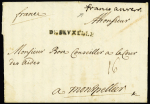 france
franc anvers
A Monsieur
DE BRUXELLE
Monsieur Bon Conseiller a la Cour
des aides
16
a montpellier